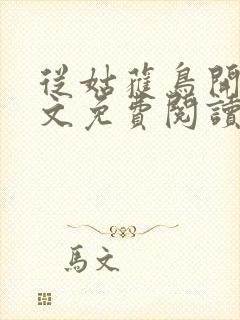 從姑蘿鳥開
文免費閱讀
馬文